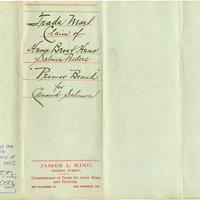 Trade Mark
Claim of
Hume Bros & Hume
Salmon Packers
"Primor Brand"
for
Canned Salmon
JAMES L. KING,
NOTARY PUBLIC,
Commissioner of Deeds for every State
and Territory
SAN FRANCISCO, CAL.
of the
of